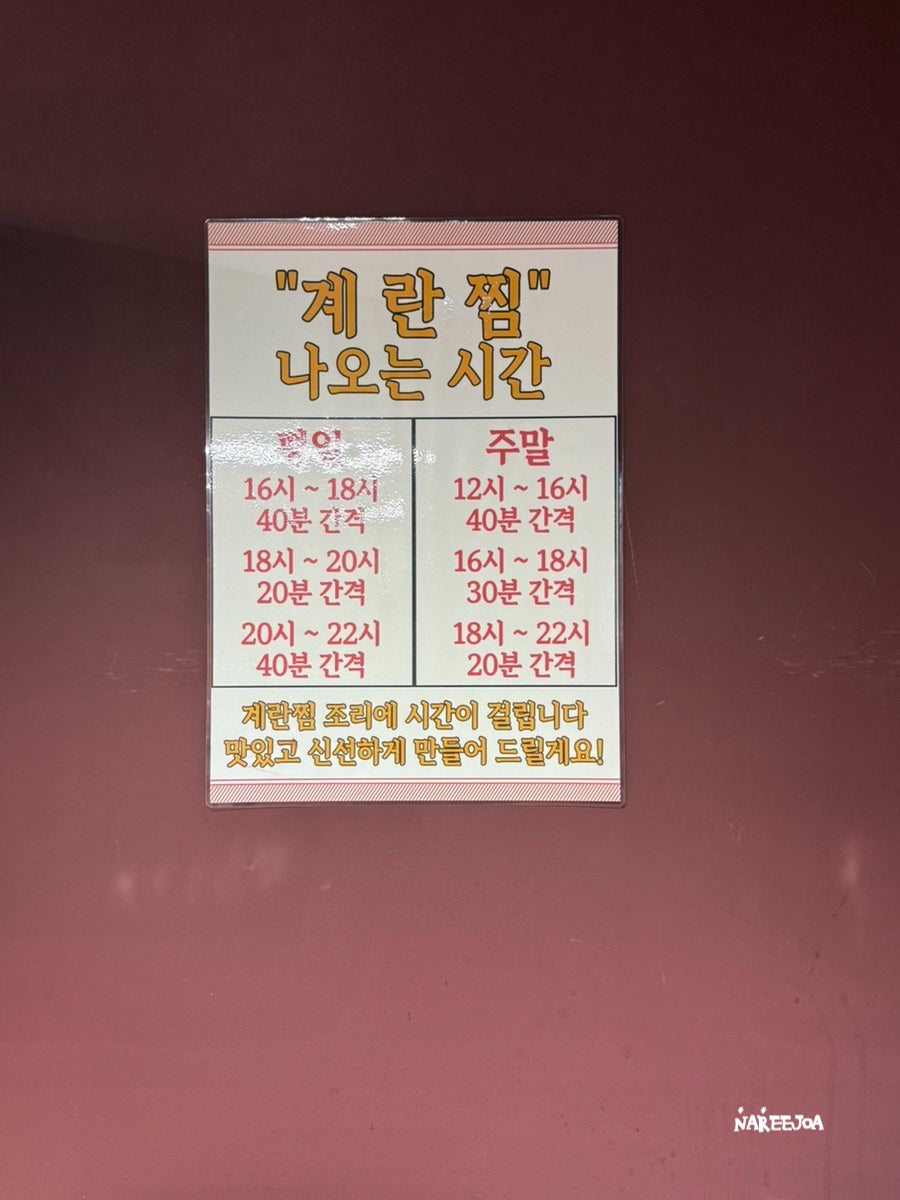 "계란찜"
나오는 시간
평일
16시 ~ 18시
40분 간격
18시 ~ 20시
20분 간격
20시 ~ 22시
40분 간격
주말
12시 ~ 16시
40분 간격
16시 ~ 18시
30분 간격
18시 ~ 22시
20분 간격
계란찜 조리에 시간이 걸립니다
맛있고 신선하게 만들어 드릴게요!
NAREEJOA